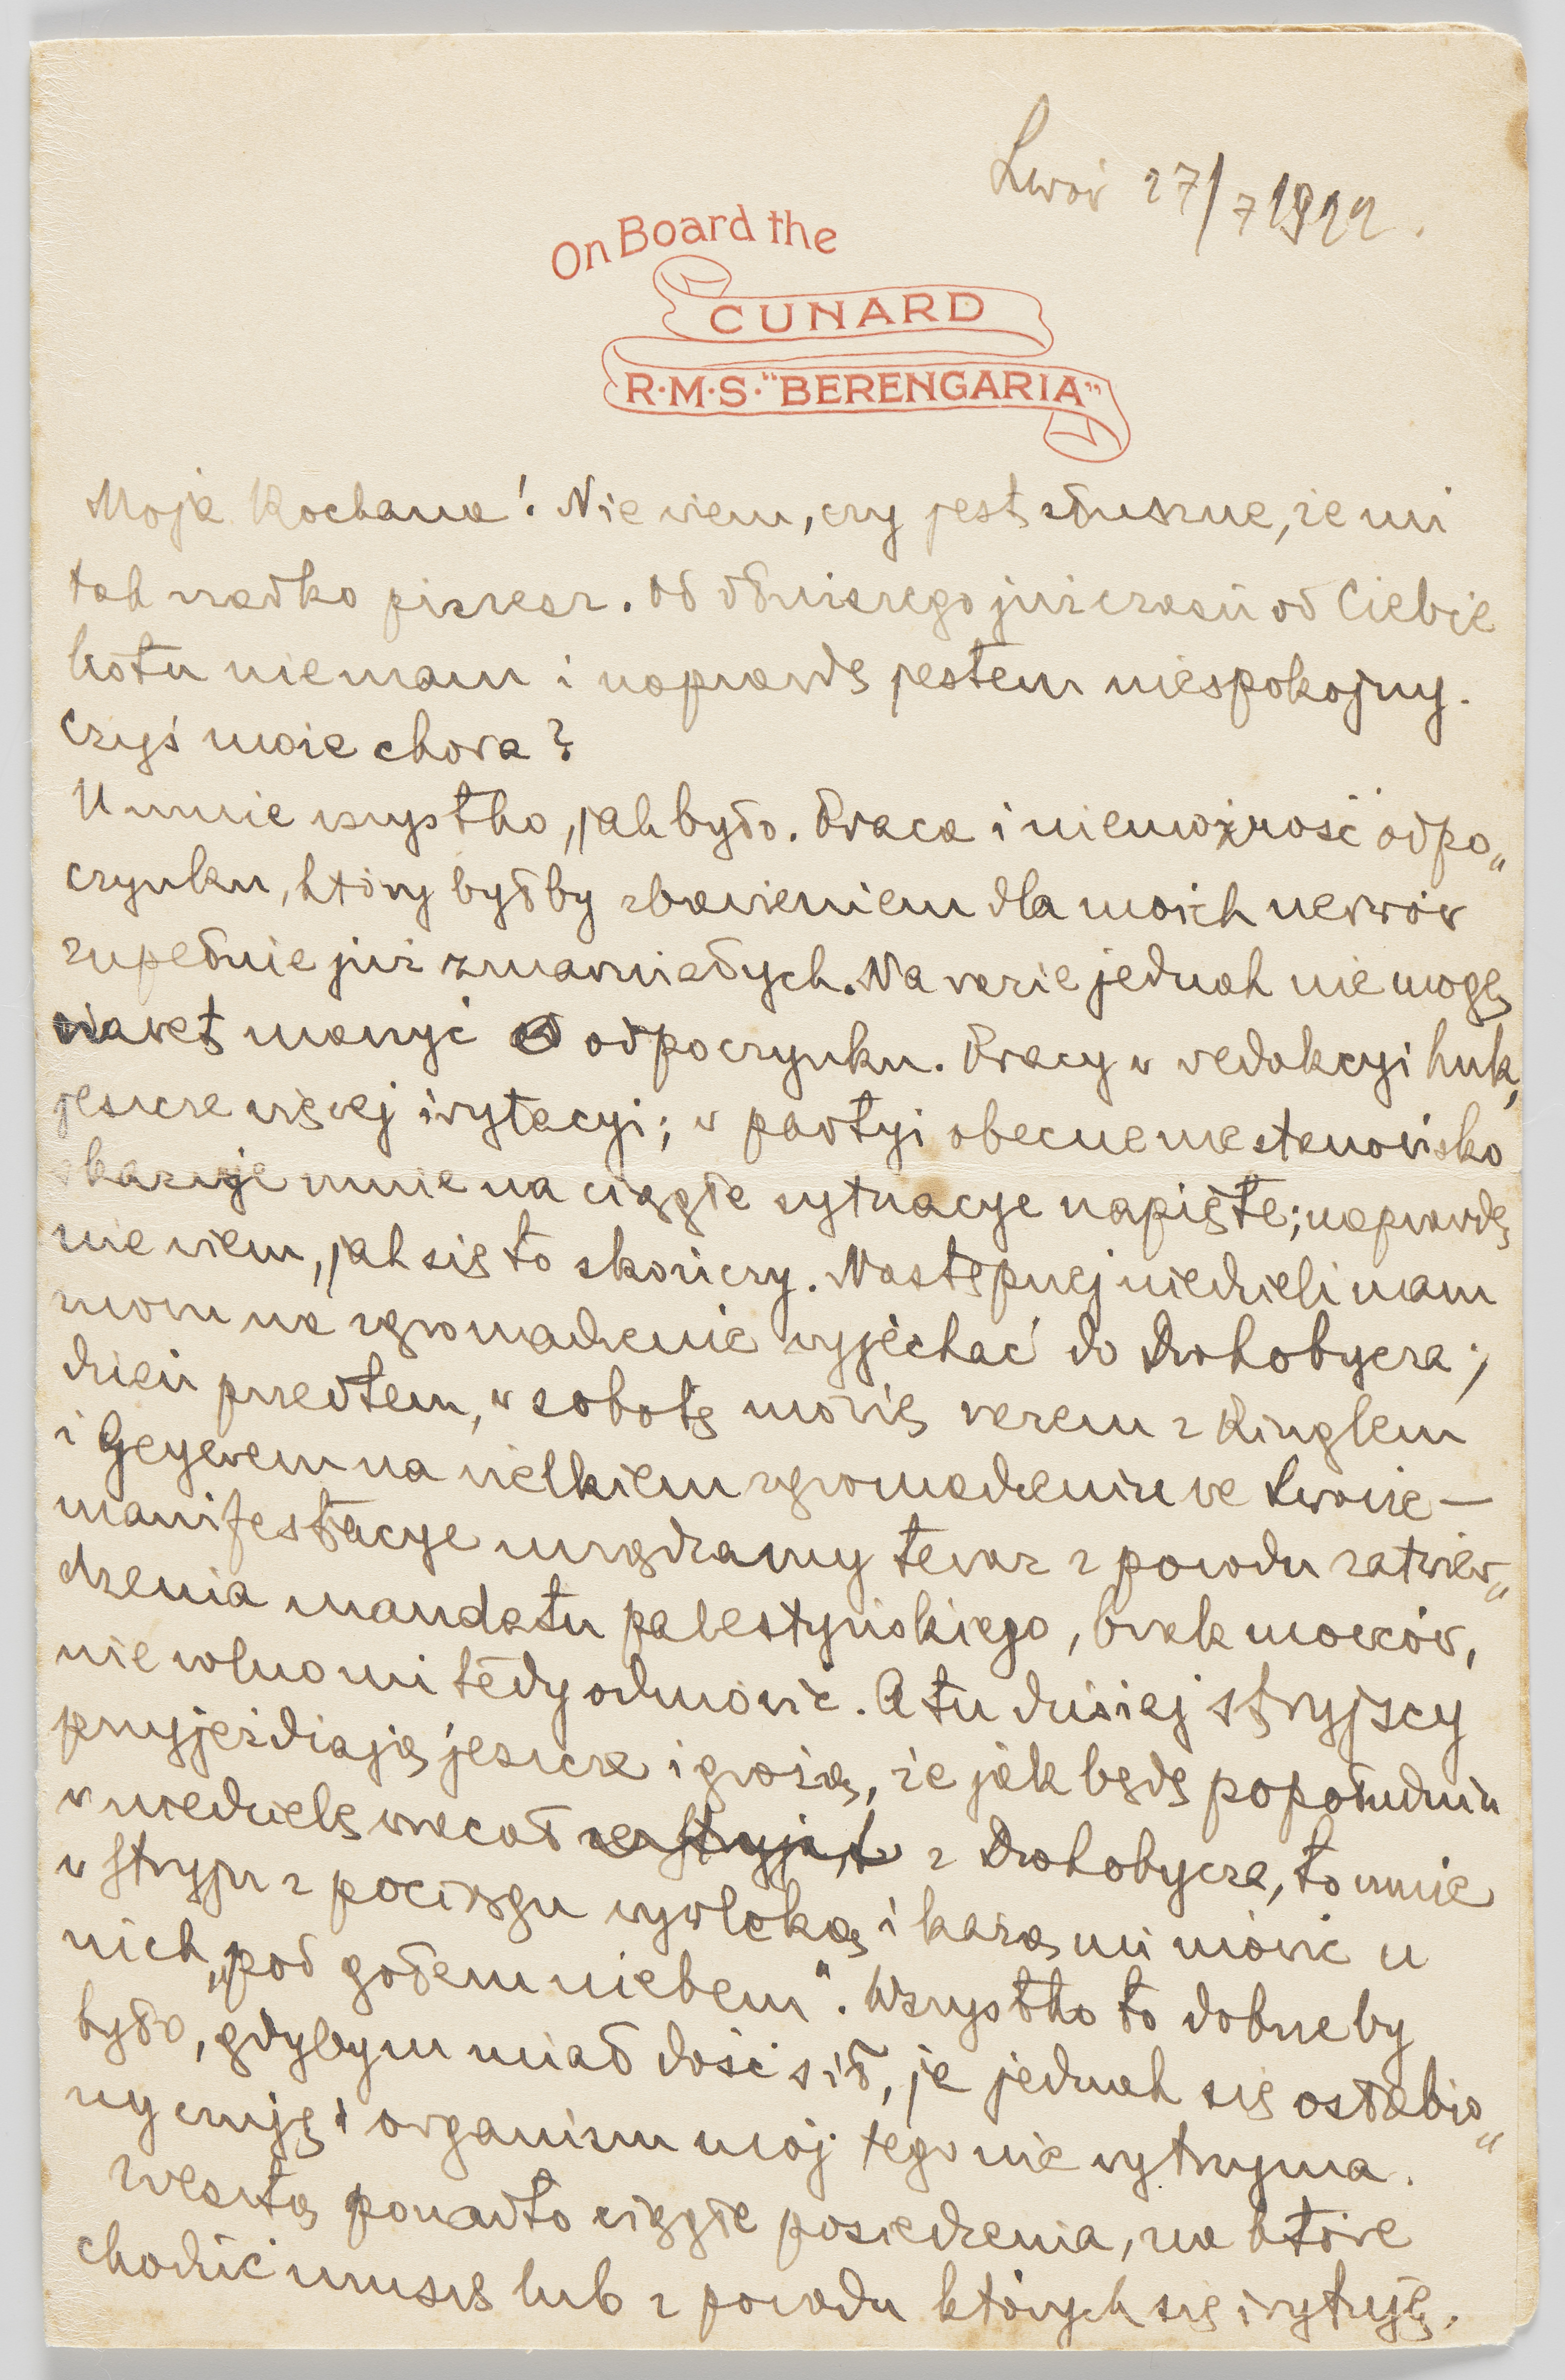 Lwów 27/7 1922.
On Board the
CUNARD
R·M·S·"BERENGARIA"
Moja Kochana! Nie wiem, czy jest słuszne, że mi
tak rzadko piszesz. Od dłuższego już czasu od Ciebie
listu nie mam i naprawdę jestem niespokojny.
Czyś może chora?
U mnie wszystko, jak było. Praca i niemożność odpo„
czynku, który byłby zbawieniem dla moich nerwów
zupełnie już zmarniałych. Na razie jednak nie mogę
nawet marzyć o odpoczynku. Pracy w redakcyi huk,
jeszcze więcej irytacyi; w partyi obecne me stanowisko
skazuje mnie na ciągłe sytuacye napięte; naprawdę
nie wiem, jak się to skończy. Następnej niedzieli mam
znowu na zgromadzenie wyjechać do Drohobycza;
dzień przedtem, w sobotę mówię razem z Ringlem
i Geyerem na wielkiem zgromadzeniu we Lwowie —
manifestacye urządzamy teraz z powodu zatwier„
dzenia mandatu palestyńskiego, brak mówców,
nie wolno mi tedy odmówić. A tu dzisiaj stryjscy
przyjeżdżają jeszcze i grożą, że jak będę popołudniu
w niedzielę wracał z Drohobycza, to mnie
w Stryju z pociągu wywleką i każą mi mówić u
nich „pod gołem niebem". Wszystko to dobre by
było, gdybym miał dość sił, ja jednak się osłabio„
ny czuję i organizm mój tego nie wytrzyma.
Zresztą ponadto ciągłe posiedzenia, na które
chodzić muszę lub z powodu których się irytuję.